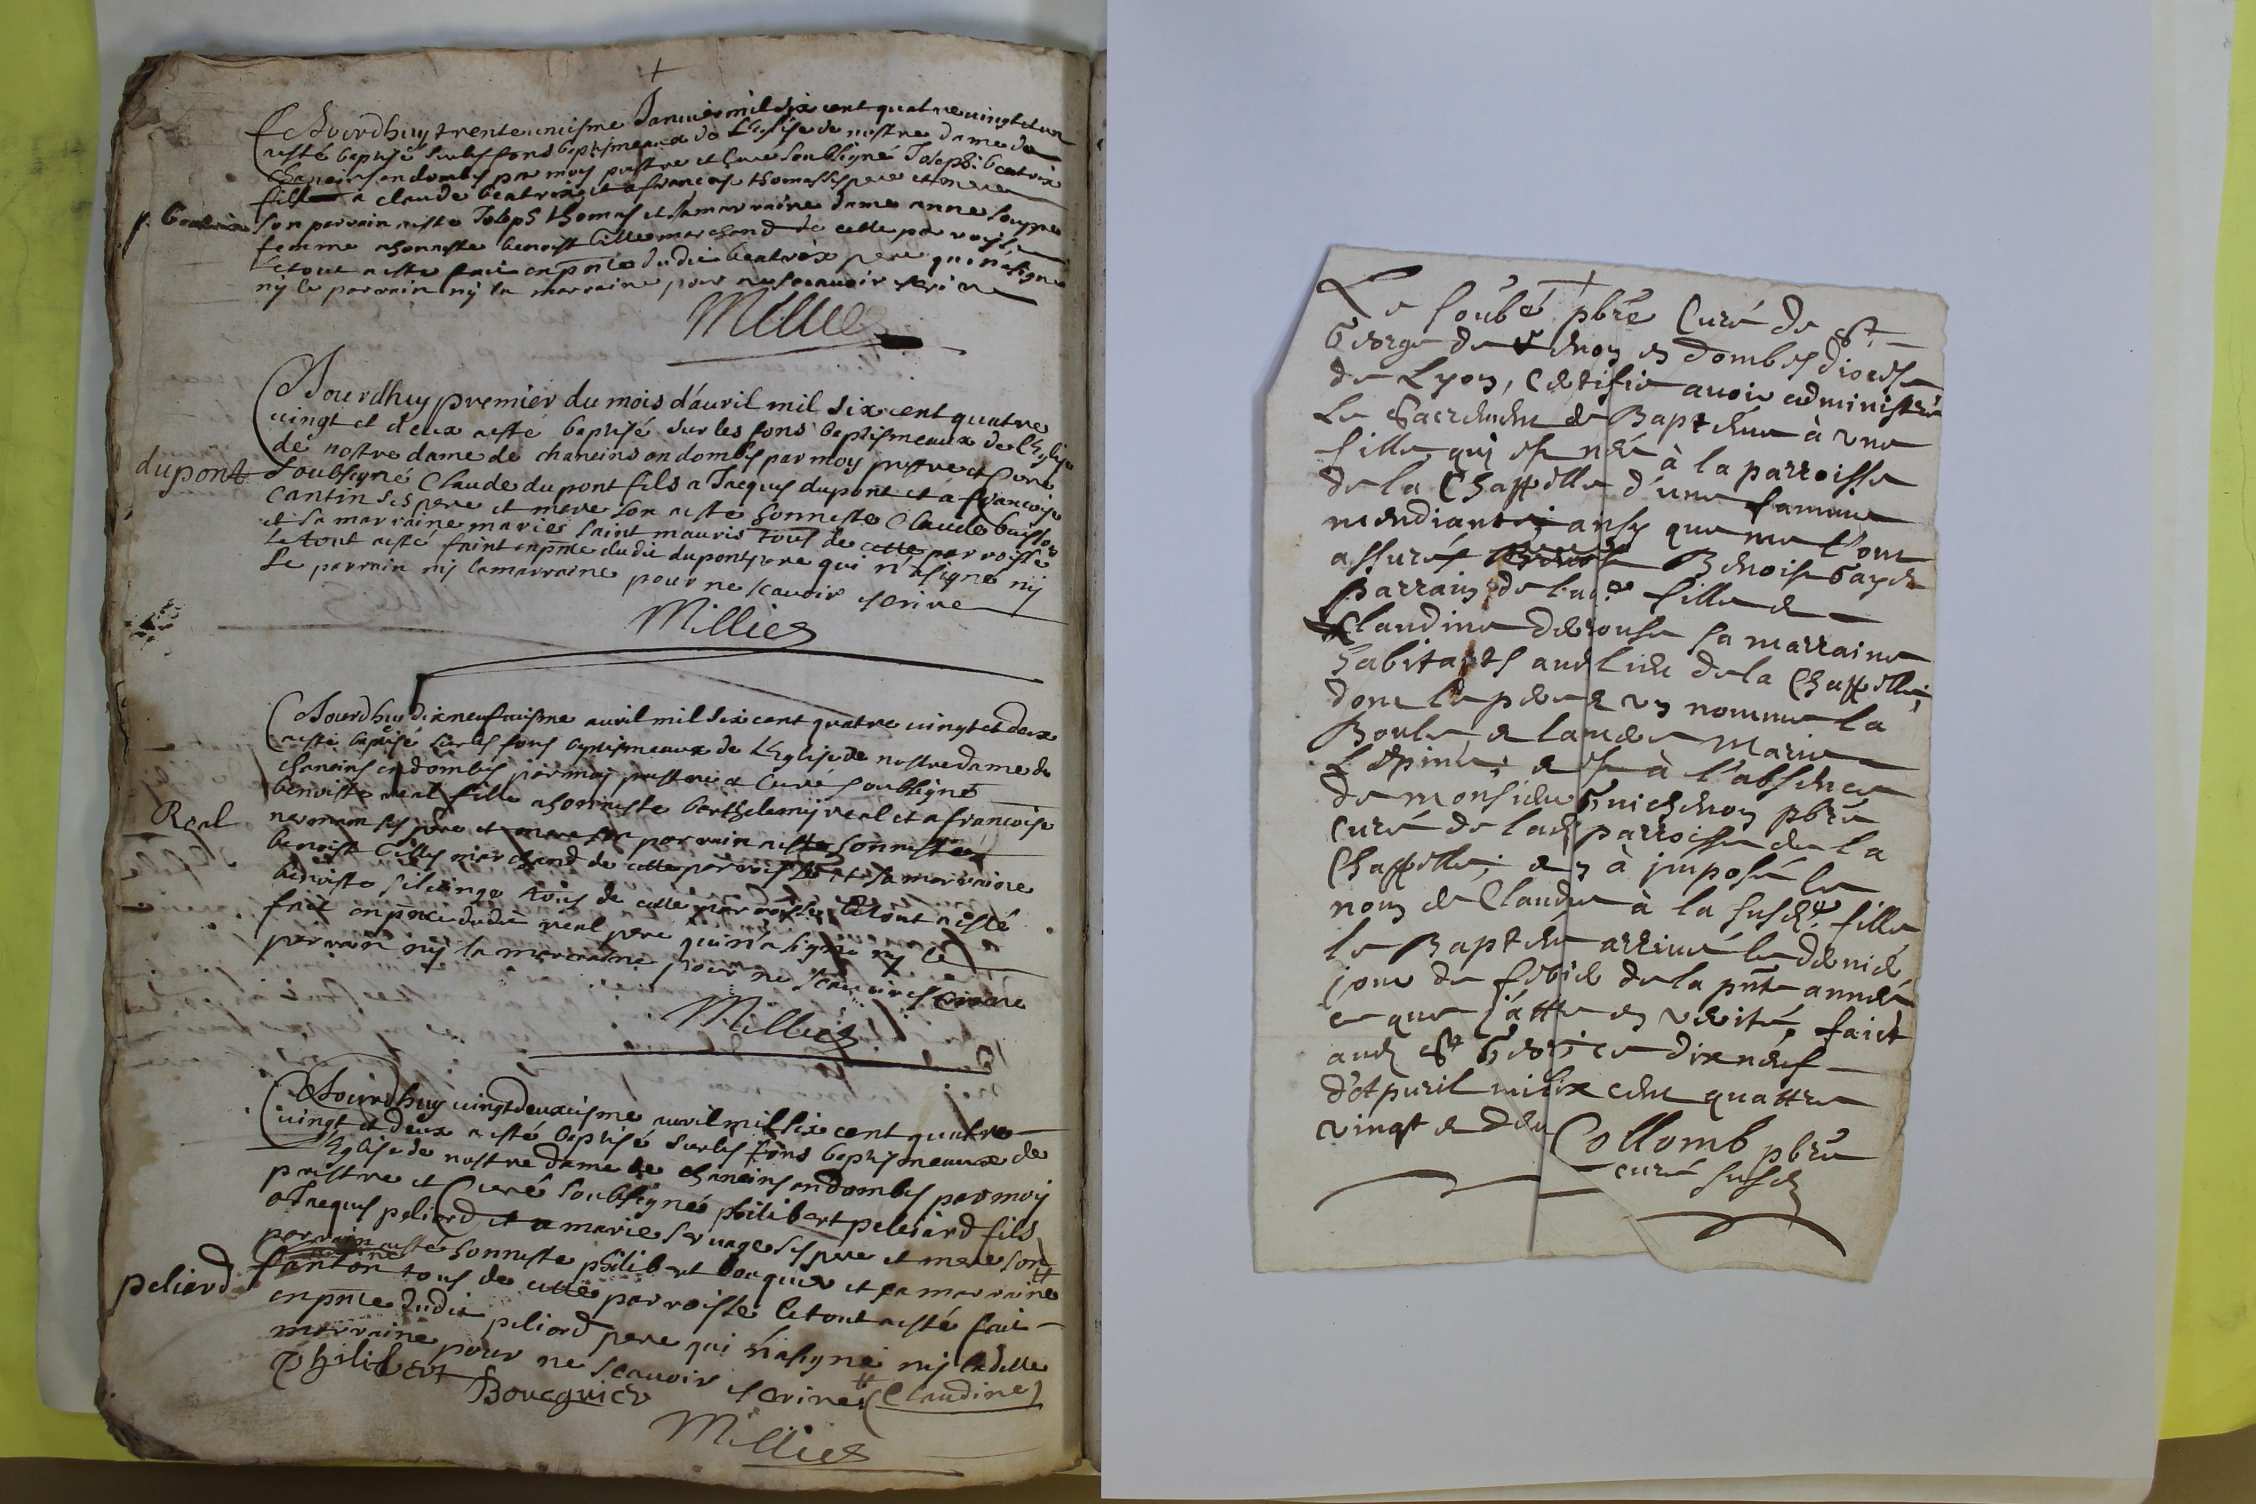 Ce Jourdhuy trente unisme Januier mil six cent quatre uingt et un
a esté baptisé sur les fons baptismeaux de L'Eglise de nostre dame de
chaneins en dombes par moy prestre et Cure soubsigné Joseph beatrix
fils a claude beatrix et a francoise thomas ses pere et mere
J. beatrix
son parrain a este Joseph thomas et sa marraine dame anne
femme a honneste benoist Cillie marchand de cette parroisse
Le tout a este fait en pnce dudit beatrix pere qui n'a signe
ny le parrain ny la marraine pour ne scauoir escrire
Millier
Ce Jourdhuy premier du mois d'auril mil six cent quatre
uingt et deux a este baptisé sur les fons baptismeaux de l'Eglise
de nostre dame de chaneins en dombes par moy prestre et Cure
dupont
soubsigné Claude du pont fils a Jacques dupont et a francoise
Cantin ses pere et mere son a este honneste Claude buisson
et sa marraine marie saint mauris tous de cette parroisse
Le tout a esté faint en pnce dudit dupont pere qui n'a signe ny
Le parrain ny la marraine pour ne scauoir escrire
Millier
Ce Jourdhuy dix neufuiesme auril mil six cent quatre uingt et deux
a esté baptisé sur les fons baptismeaux de L'Eglise de nostre dame de
chaneins en dombes par moy prestre et Curé soubsigné
benoiste real fille a honneste berthelemy real et a francoise
Real
ses pere et mere son parrain a este honneste
benoist Cillie marchand de cette parroisse et sa marraine
benoiste tous de cette parroisse Le tout a esté
fait en pnce dudit real pere qui n'a signe ny le
parrain ny la marraine pour ne scauoir escrire
Millier
Ce Jourdhuy uingt deuxiesme auril mil six cent quatre
uingt et deux a esté baptisé sur les fons baptismeaux de
L'Eglise de nostre dame de chaneins en dombes par moy
prestre et Curé soubsigné philibert peliard fils
a Jacques peliard et a marie seruage ses pere et mere son
parrain a esté honneste philibert bouquier et sa marraine #
peliard
fanton tous de cette parroisse Le tout a esté fait
en pnce dudit peliard pere qui n'a signe ny ladite
marraine pour ne scauoir escrire # (Claudine)
Philibert
Boucquier
Millier
Le soubé pbre Curé de St
George de Renon en Dombes diocese
de Lyon, Certifie auoir administré
Le Sacrement de Bapteme à une
fille qui est née à la parroisse
de la Chappelle d'une famme
mendiante, ainsy que me l'ont
assuré Benoist Gayet
Parrain de lade fille et
Claudine Derouse sa marraine
habitants aud lieu de la Chappelle,
dont le pere est un nommé la
Boule et la mere Marie
Lespine, et est à l'absence
de monsieur Guichenon pbre
curé de lad parroisse de la
Chappelle, et on à imposé le
nom de Claudine à la susde fille
le Bapteme arriué le dernier
jour de feburier de la pnte année
ce que j'atteste en verité, faict
aud St George ce dix neuf
d'Apuril mil six cent quattre
vingt et deux
Collomb pbre
curé susd